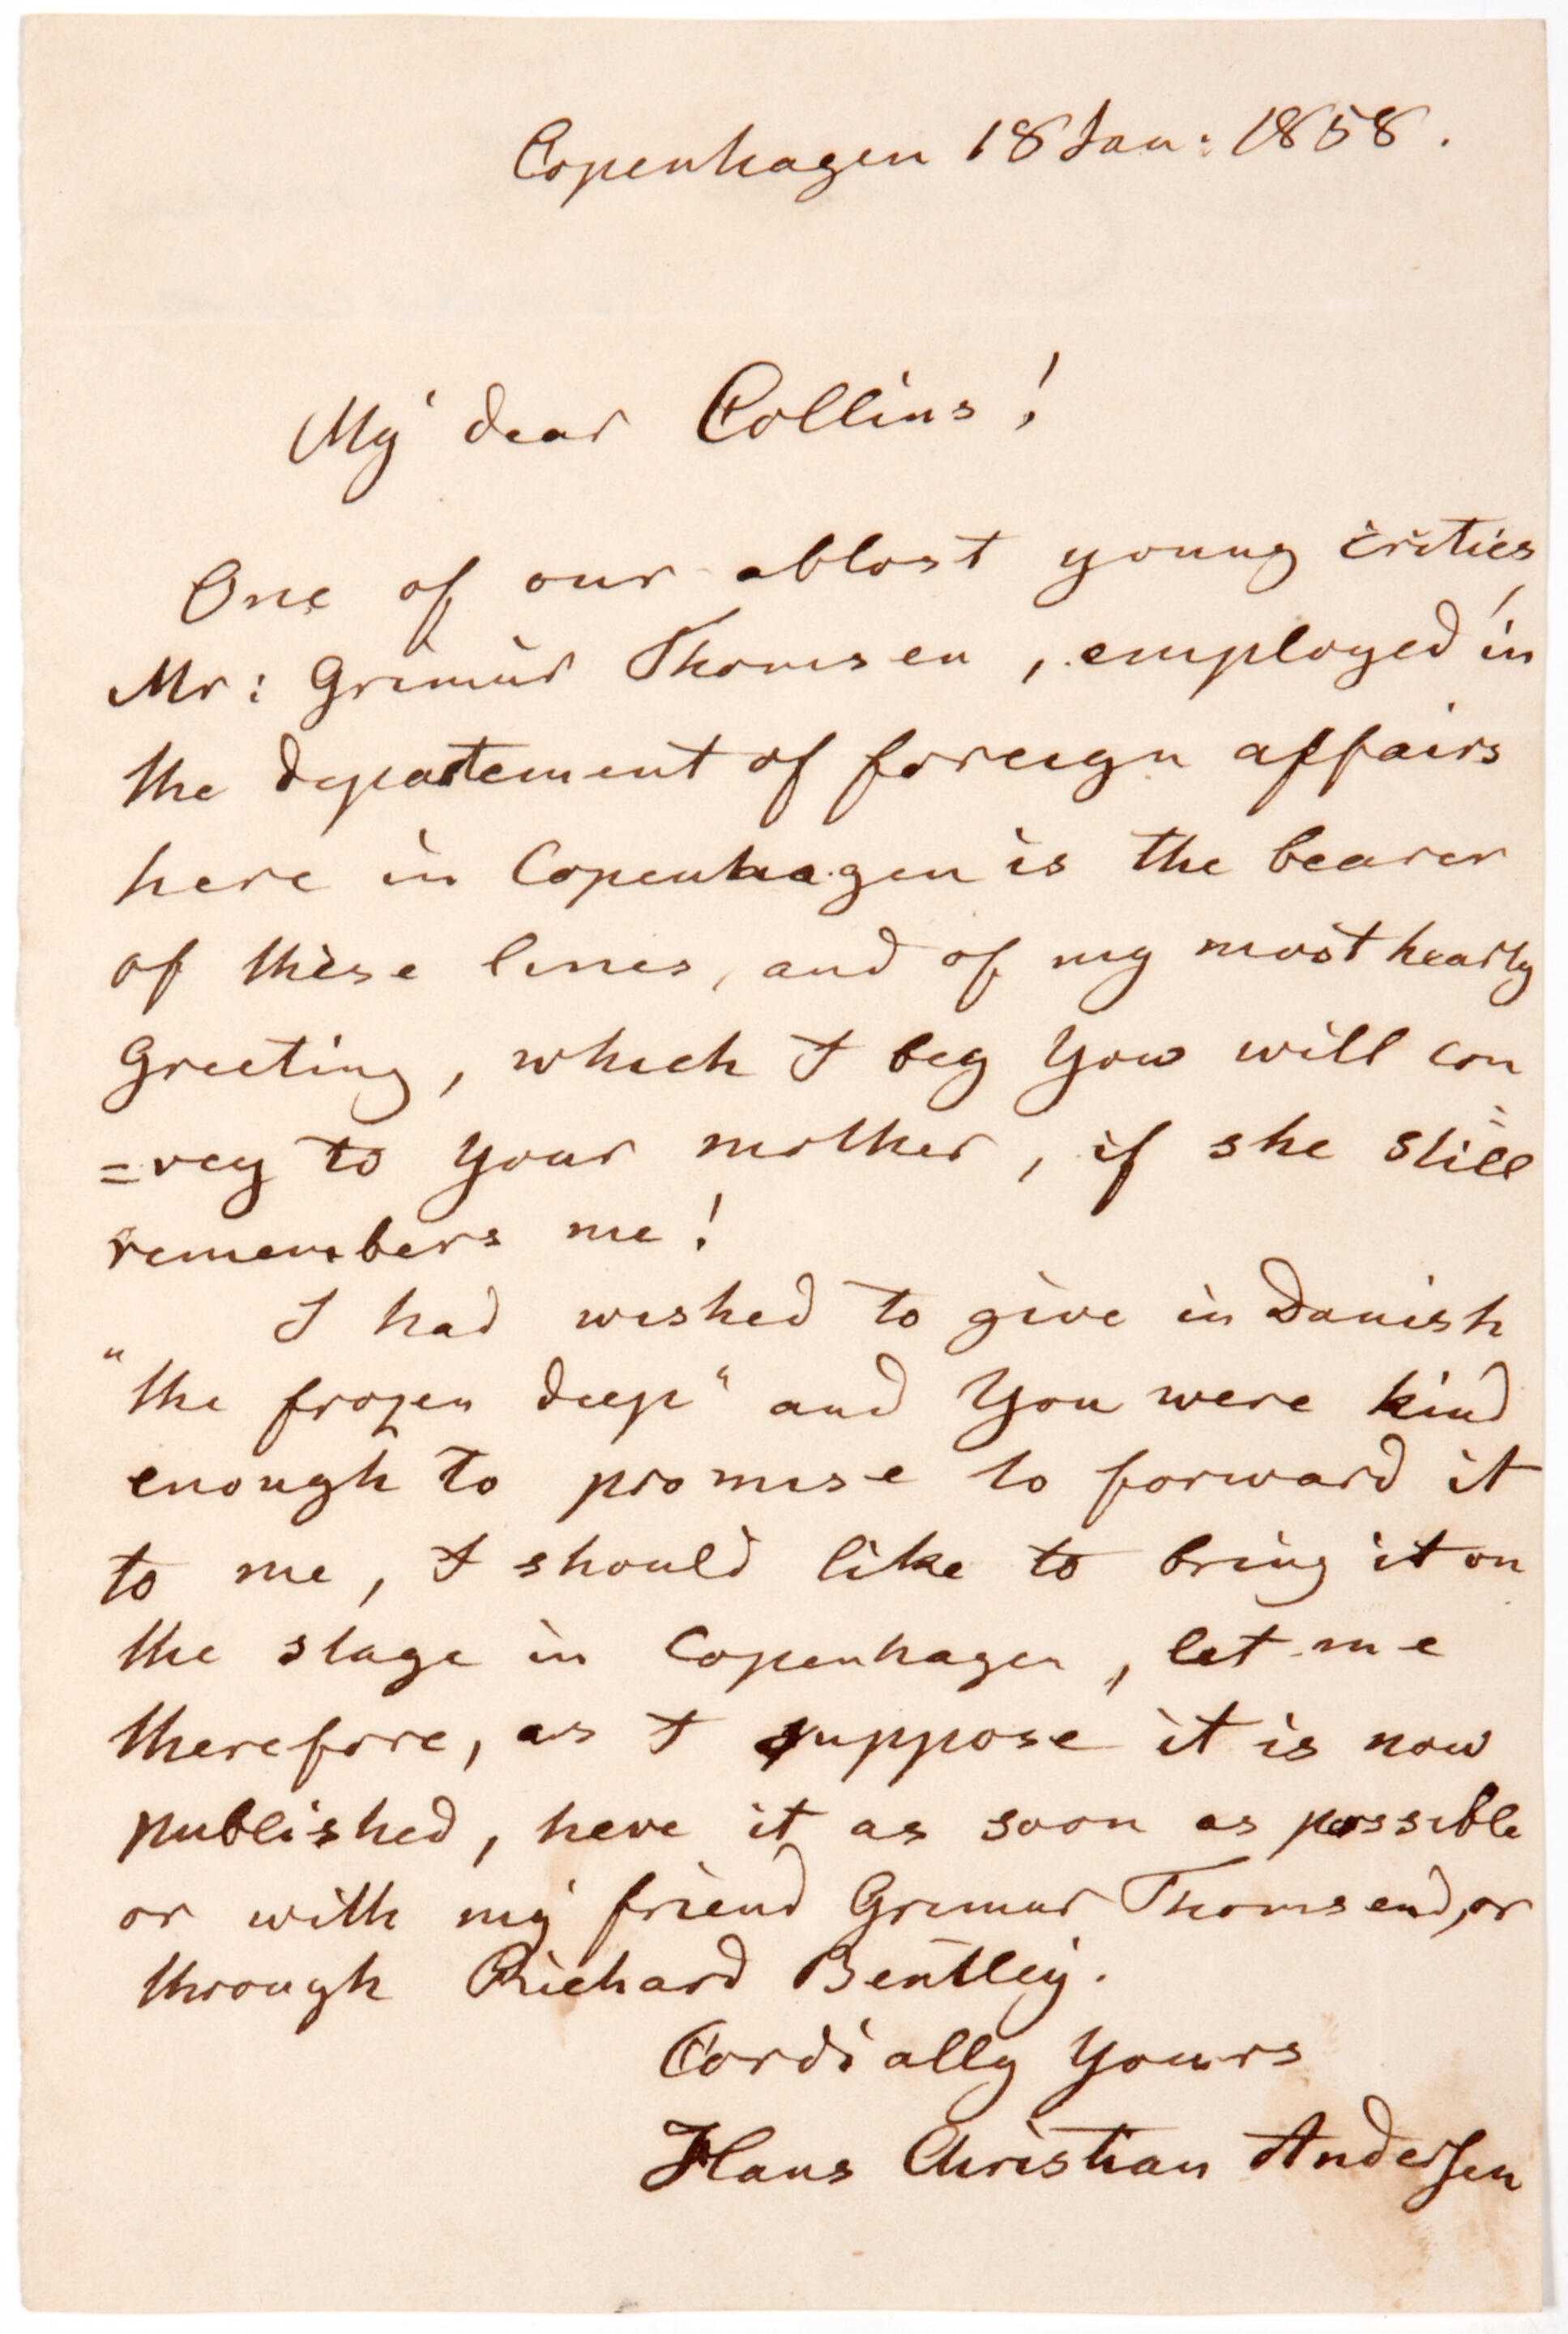 Copenhagen 18 Jan: 1858.
My dear Collins!
One of our ablest young critics,
Mr: Grimur Thomsen, employed in
the departement of foreign affairs
here in Copenhagen is the bearer
of these lines, and of my most hearty
Greeting, which I beg You will con
=vey to Your mother, if she still
remembers me!
I had wished to give in Danish
"the frozen deep" and You were kind
enough to promise to forward it
to me, I should like to bring it on
the stage in Copenhagen, let me
therefore, as I suppose it is now
published, have it as soon as possible
or with my friend Grimur Thomsend, or
through Richard Bentley.
Cordially Yours
Hans Christian Andersen